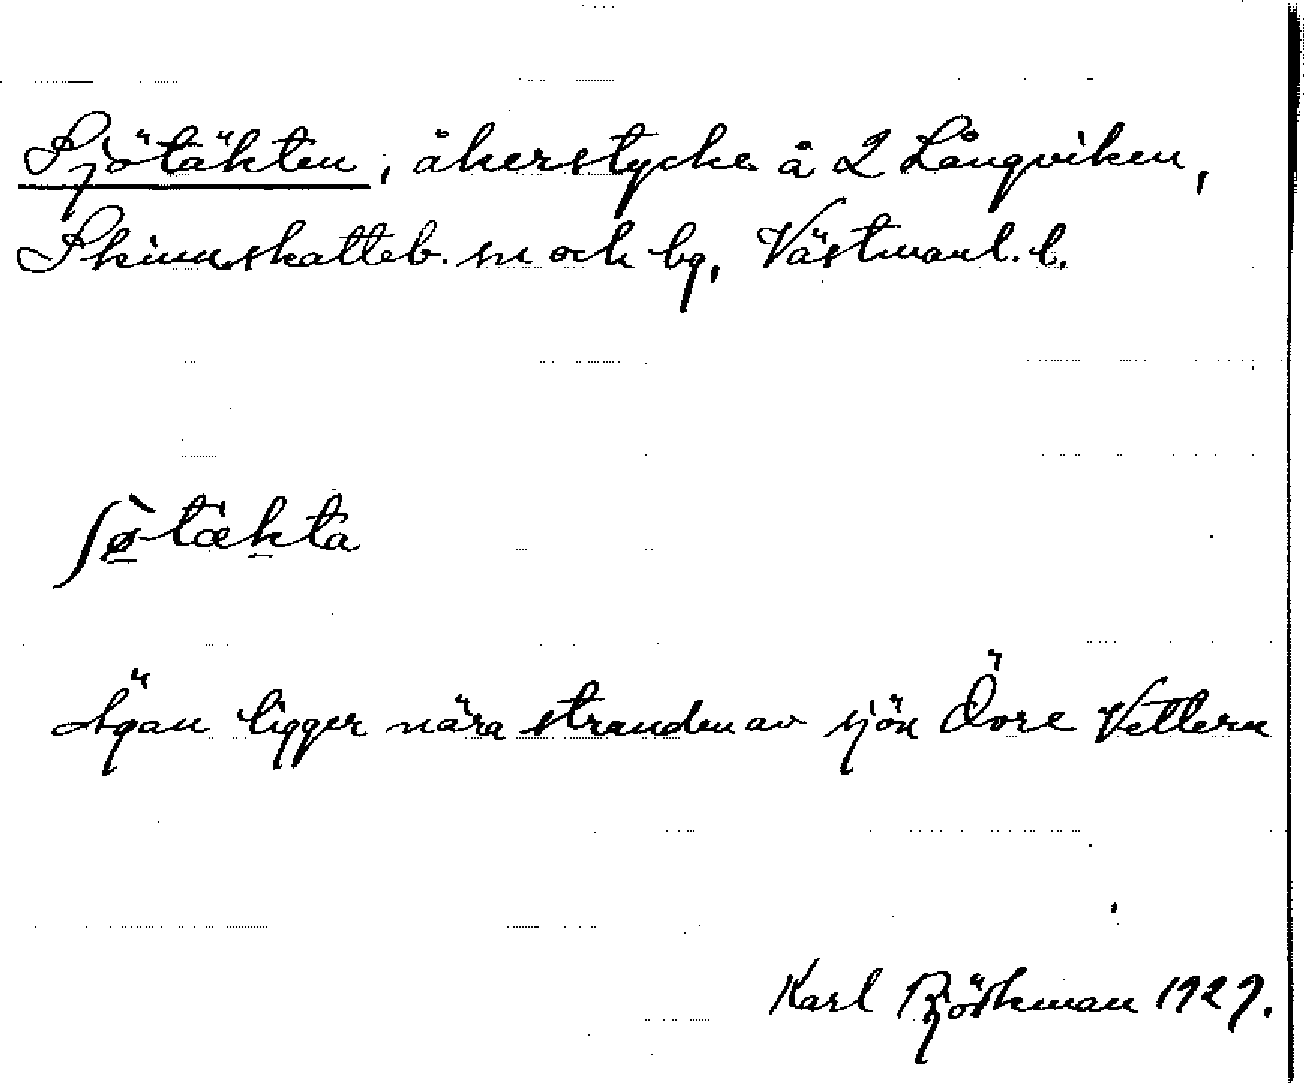 Sjötäkten, åkerstycke å 2 Långviken,
Skinnskatteb. sn och bg, Västmanl. l.
ʃø̀tækta
Ägan ligger nära stranden av sjön Övre Vettern
Karl Björkman 1929.